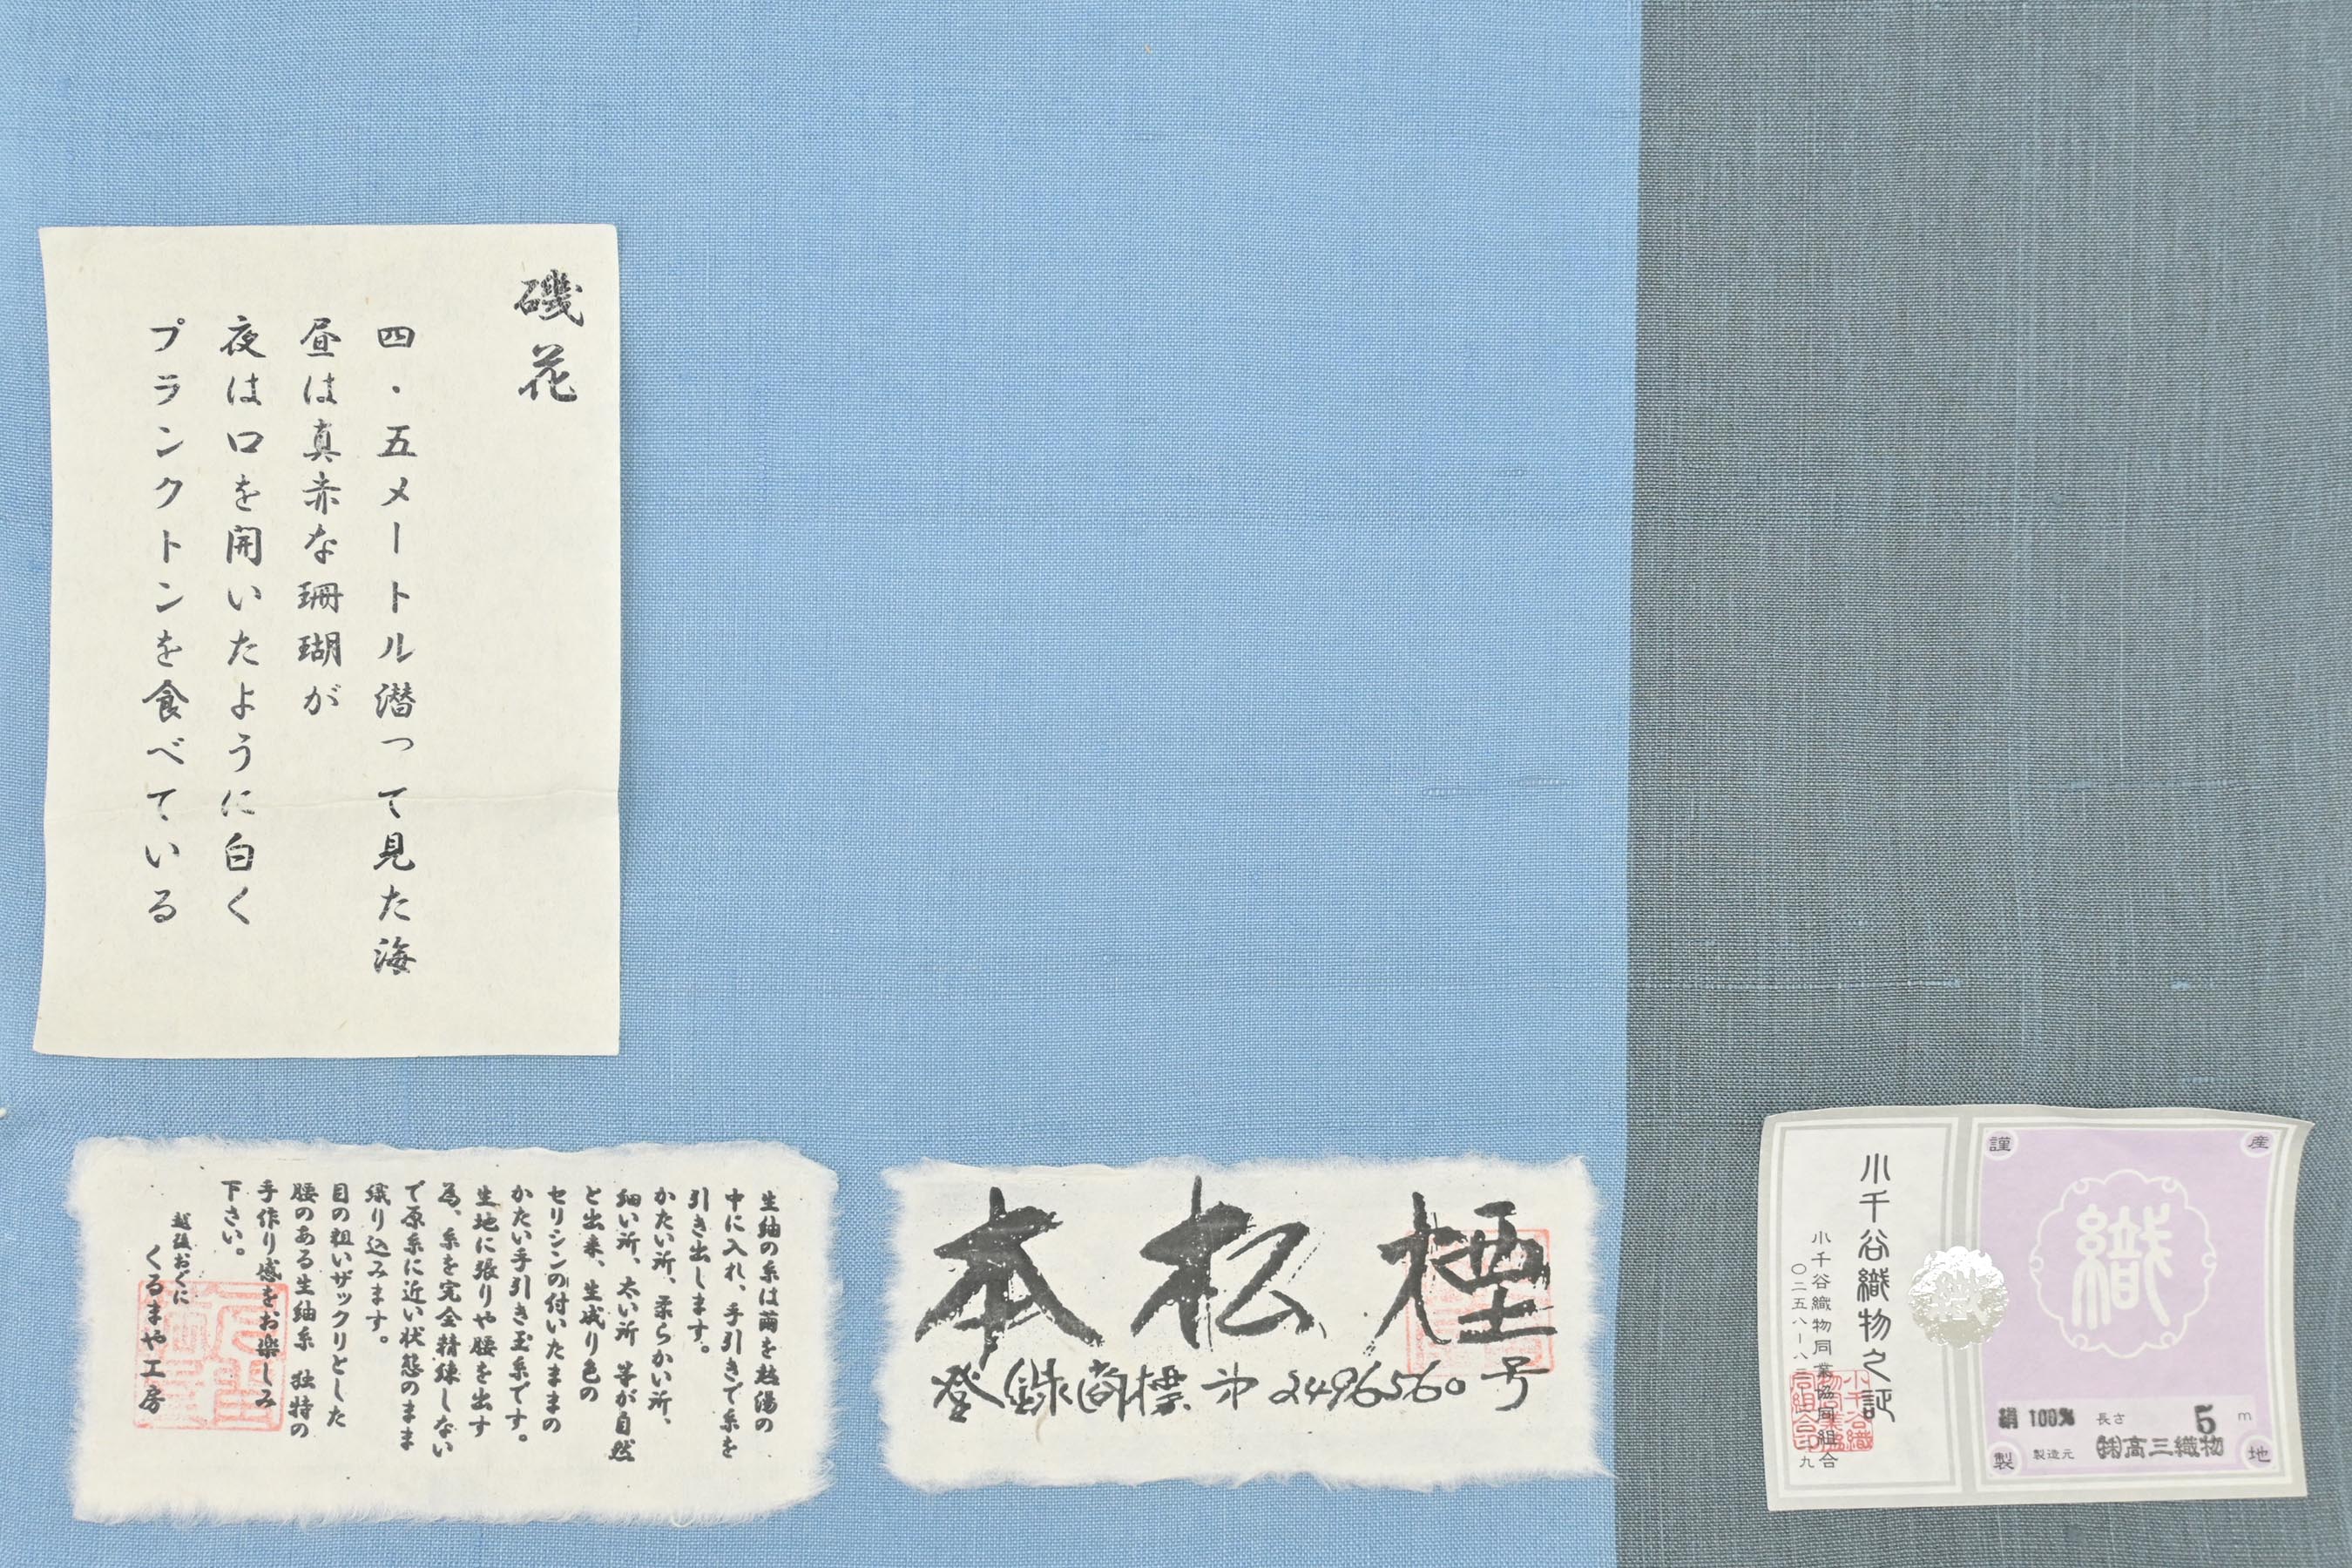 磯花
四・五メートル潜って見た海
昼は真赤な珊瑚が
夜は口を開いたように白く
プランクトンを食べている
生紬の糸は繭を熱湯の
中に入れ、手引きで糸を
引き出します。
かたい所、柔らかい所、
細い所、太い所 等が自然
と出来、生成り色の
セリシンの付いたままの
かたい手引き玉糸です。
生地に張りや腰を出す
為、糸を完全精練しない
で原糸に近い状態のまま
織り込みます。
目の粗いザックリとした
腰のある生紬糸 独特の
手作り感をお楽しみ
下さい。
越後おぐに
くるまや工房
本松煙
登録商標 第2496560号
謹
産
製
地
織
絹 100% 長さ 5 m
製造元 ㈱高三織物
小千谷織物之証
小千谷織物同業協同組合